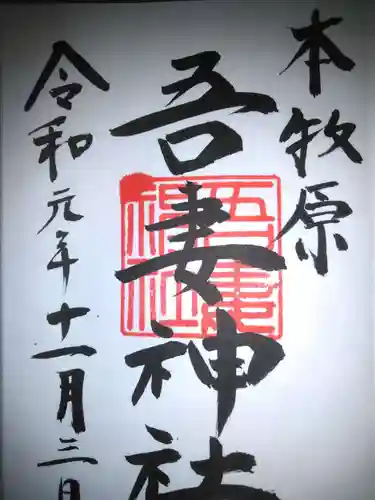 本牧原
吾妻神社
令和元年十一月三日
吾妻
神社